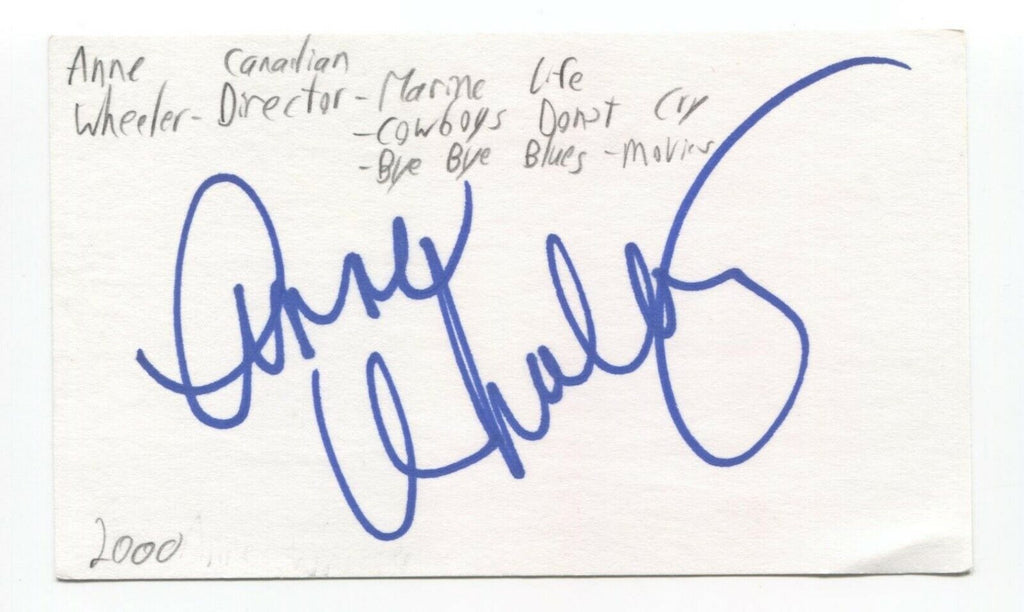 Anne Canadian
Wheeler- Director - Marine Life
- Cowboys Don't Cry
- Bye Bye Blues - Movies
Anne Wheeler
2000